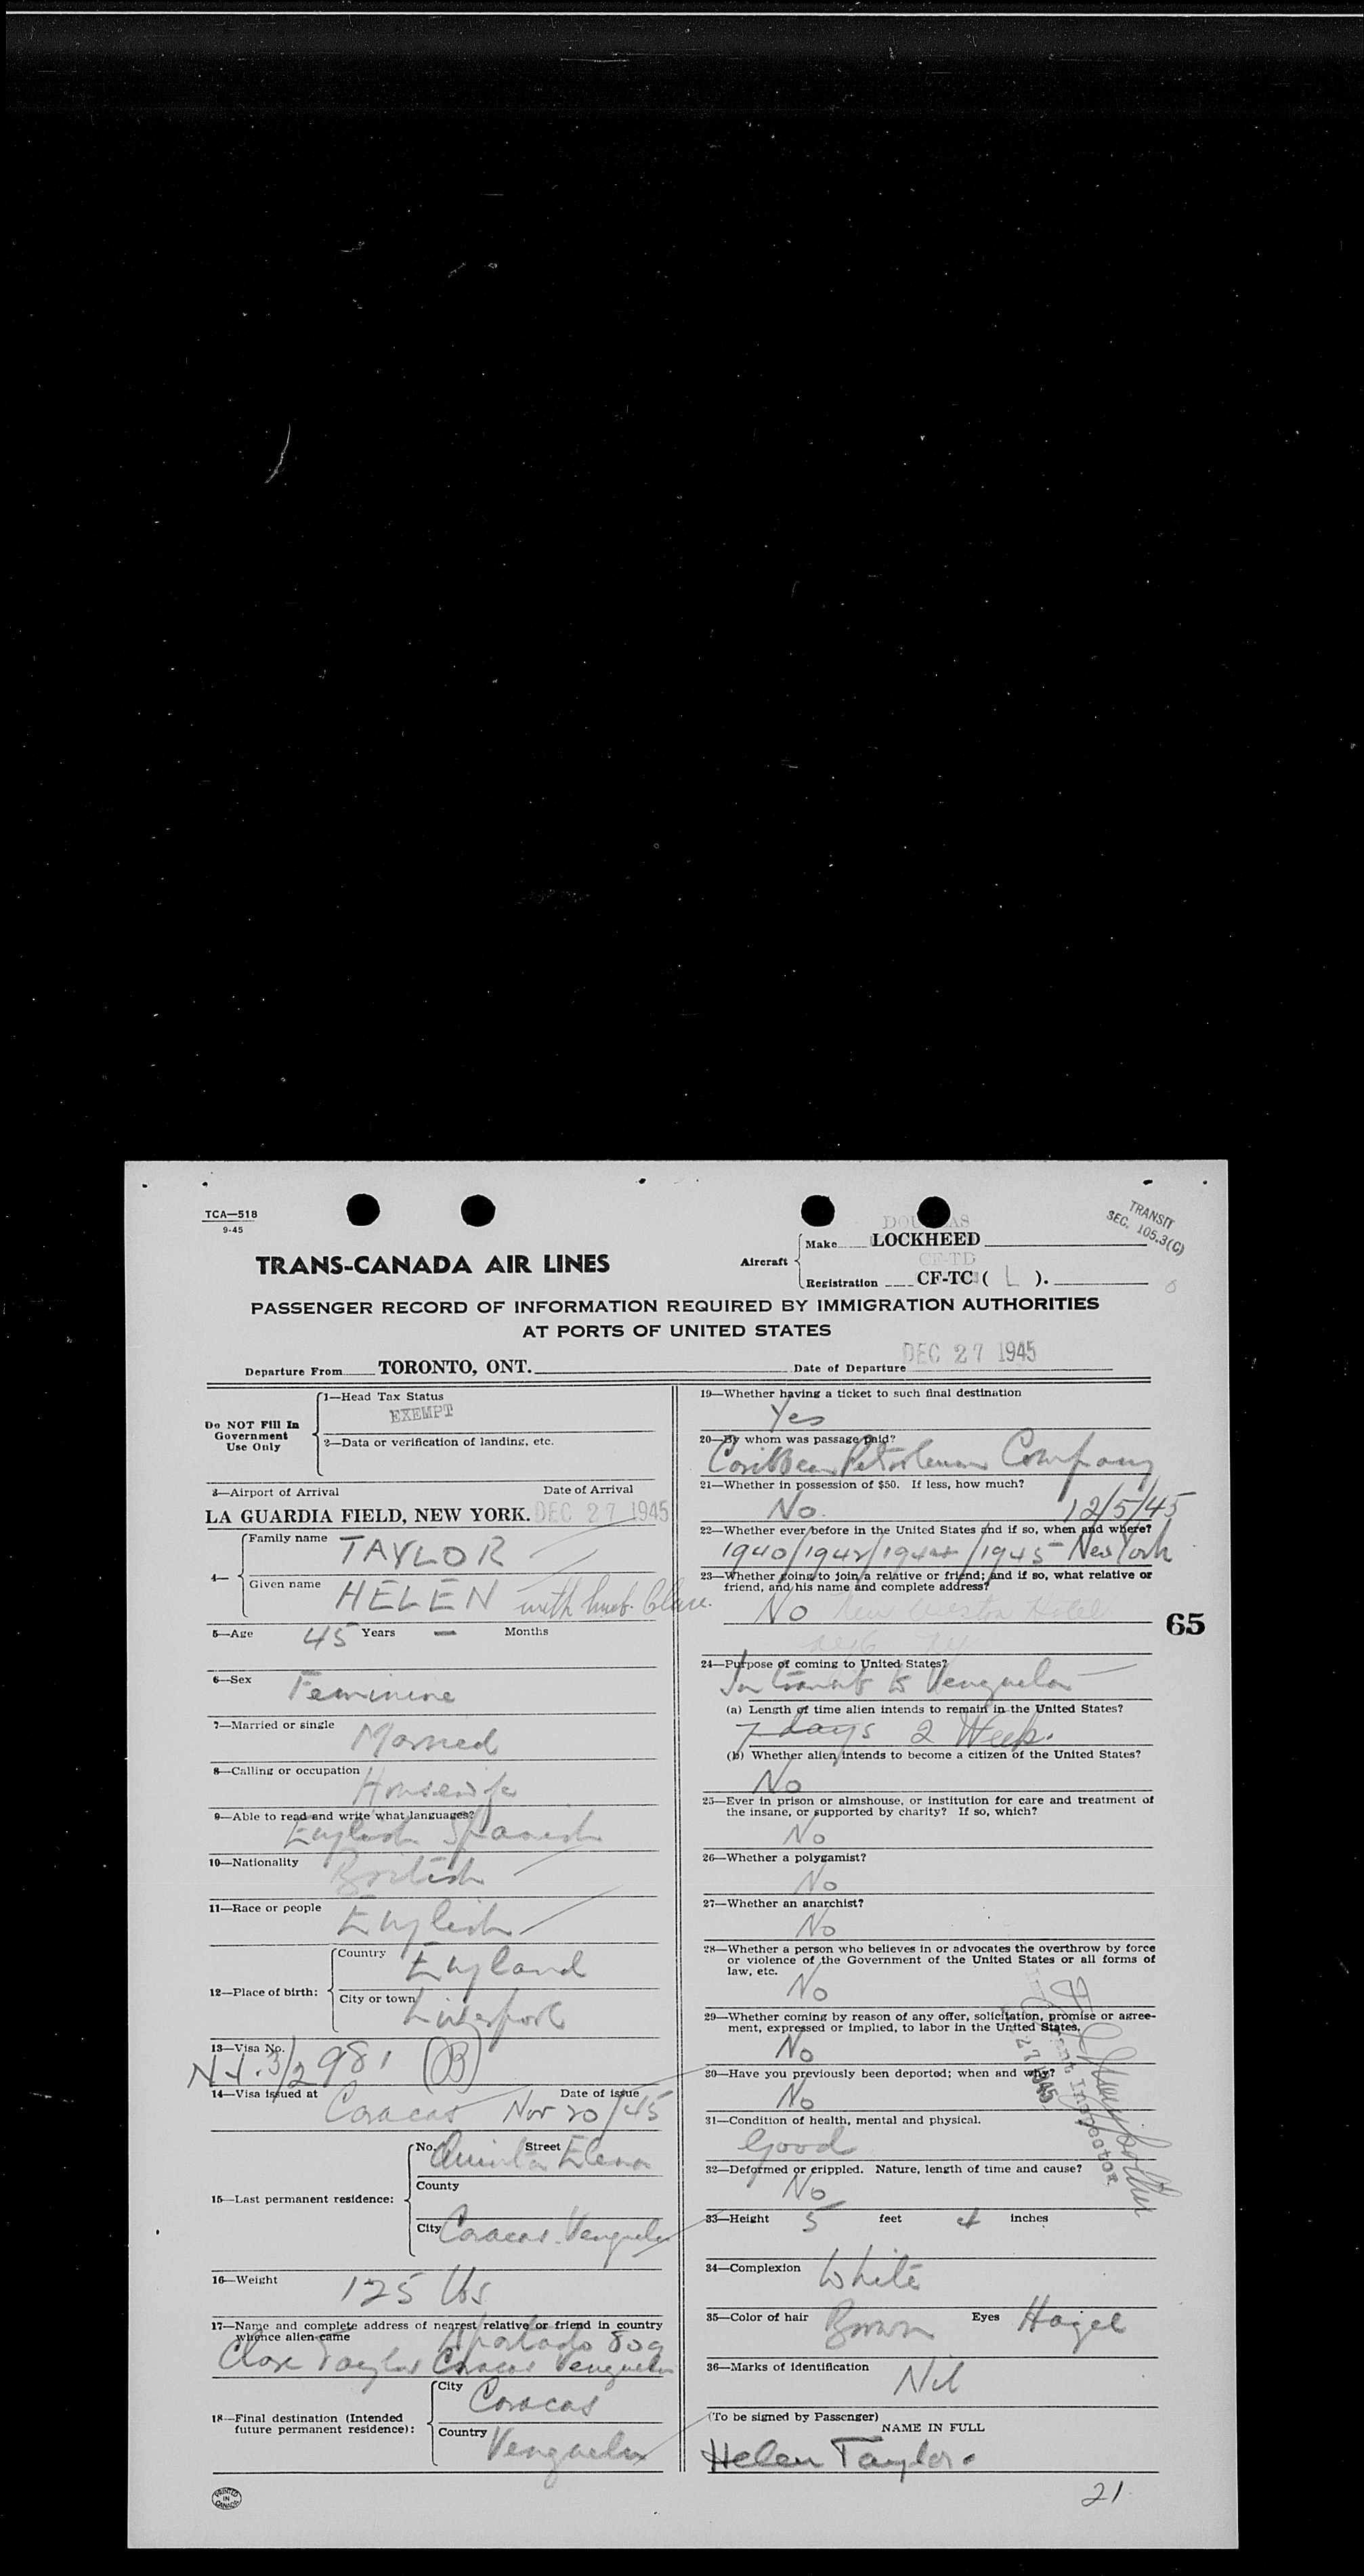 TCA—518
9-45
TRANSIT
SEC. 105.3(C)
TRANS-CANADA AIR LINES
Aircraft
DOUGLAS
Make LOCKHEED
CF-TD
Registration CF-TC ( L ).
PASSENGER RECORD OF INFORMATION REQUIRED BY IMMIGRATION AUTHORITIES
AT PORTS OF UNITED STATES
Departure From TORONTO, ONT. Date of Departure DEC 27 1945
Do NOT Fill In
Government
Use Only
1—Head Tax Status
EXEMPT
2—Data or verification of landing, etc.
3—Airport of Arrival Date of Arrival
LA GUARDIA FIELD, NEW YORK. DEC 27 1945
4—
Family name TAYLOR
Given name HELEN with husb. Clare.
5—Age 45 Years — Months
6—Sex Feminine
7—Married or single Married
8—Calling or occupation Housewife
9—Able to read and write what languages?
English Spanish
10—Nationality British
11—Race or people English
12—Place of birth:
Country England
City or town Liverpool
13—Visa No.
3/2981 (B)
14—Visa issued at Date of issue
Caracas Nov 20/45
15—Last permanent residence:
No. Street
Quinta Elena
County
City Caracas. Venezuela
16—Weight 125 lbs
17—Name and complete address of nearest relative or friend in country
whence alien came Apartado 809
Clare Taylor Caracas Venezuela
18—Final destination (Intended
future permanent residence):
City Caracas
Country Venezuela
PRINTED
IN
CANADA
19—Whether having a ticket to such final destination
Yes
20—By whom was passage paid?
Caribbean Petroleum Company
21—Whether in possession of $50. If less, how much?
No. 12/5/45
22—Whether ever before in the United States and if so, when and where?
1940/1942/1944/1945 New York
23—Whether going to join a relative or friend; and if so, what relative or
friend, and his name and complete address?
No New Weston Hotel
65
24—Purpose of coming to United States?
In transit to Venezuela
(a) Length of time alien intends to remain in the United States?
7 days 2 Weeks.
(b) Whether alien intends to become a citizen of the United States?
No
25—Ever in prison or almshouse, or institution for care and treatment of
the insane, or supported by charity? If so, which?
No
26—Whether a polygamist?
No
27—Whether an anarchist?
No
28—Whether a person who believes in or advocates the overthrow by force
or violence of the Government of the United States or all forms of
law, etc.
No
29—Whether coming by reason of any offer, solicitation, promise or agree-
ment, expressed or implied, to labor in the United States.
No
30—Have you previously been deported; when and why?
No
31—Condition of health, mental and physical.
Good
32—Deformed or crippled. Nature, length of time and cause?
No
27 1945
Inspector
33—Height 5 feet 4 inches
34—Complexion White
35—Color of hair Brown Eyes Hazel
36—Marks of identification Nil
(To be signed by Passenger)
NAME IN FULL
Helen Taylor.
21